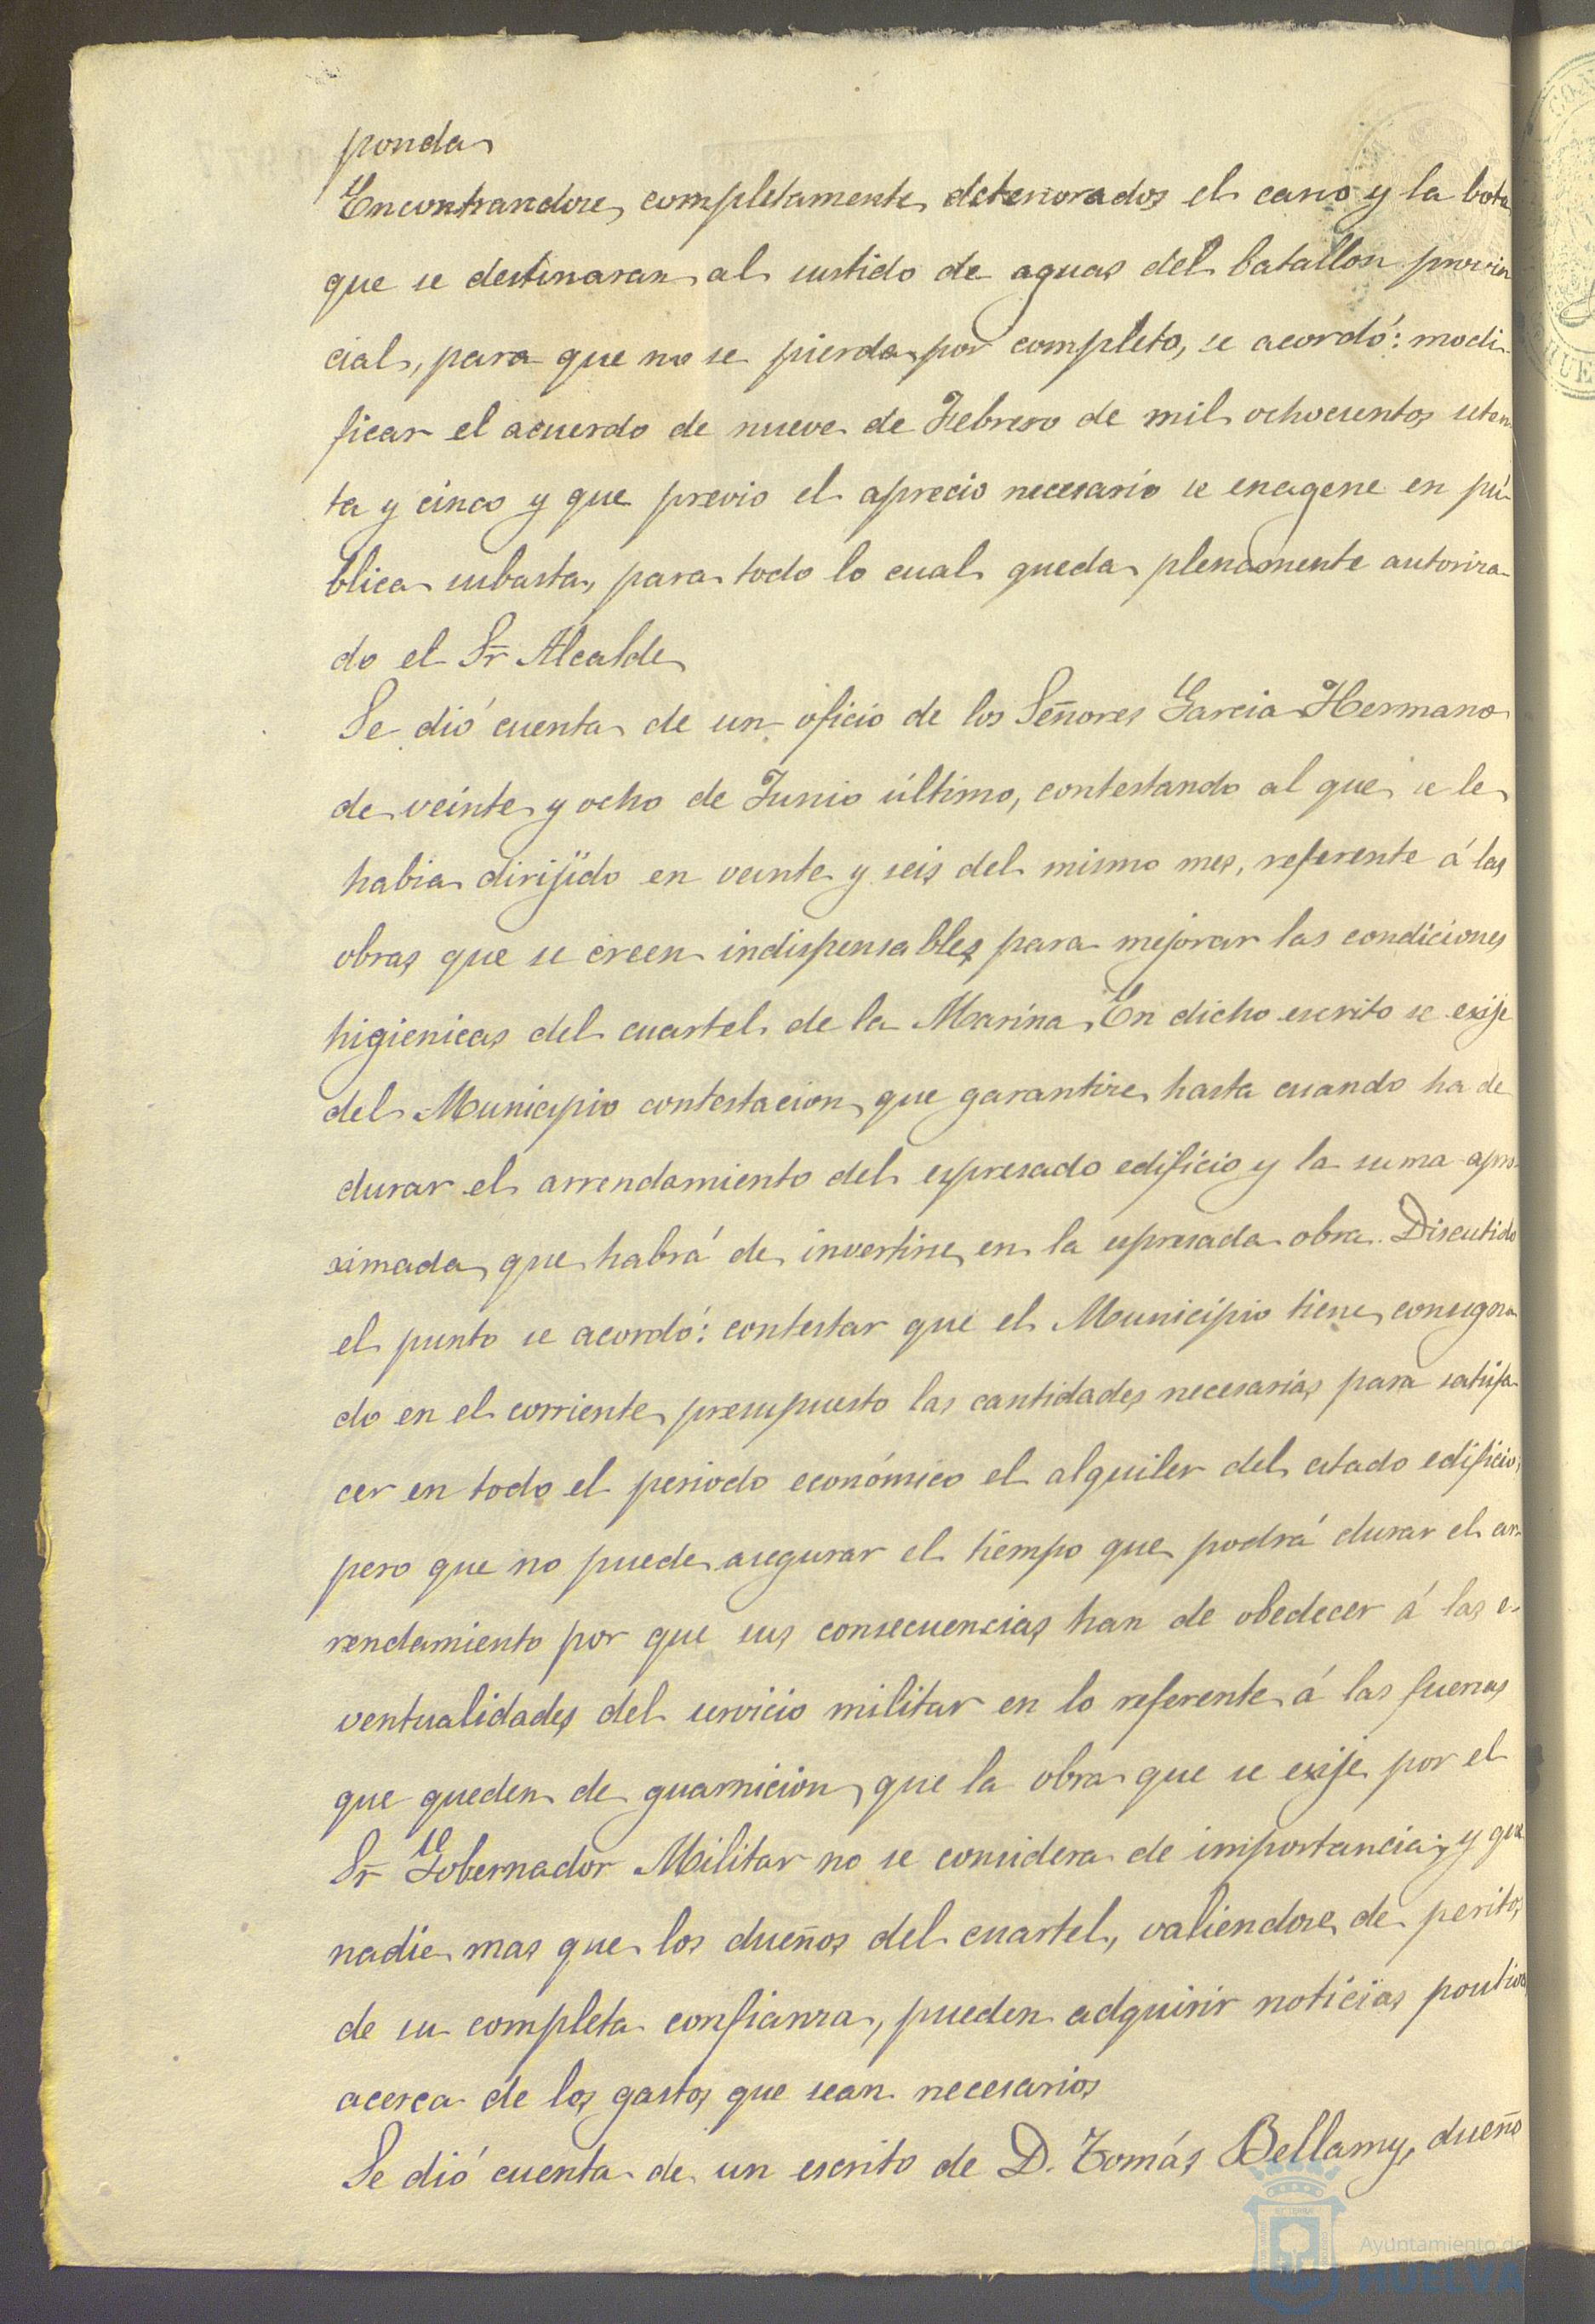 ponda
Encontrandose completamente deteriorados el carro y la bota
que se destinaran al surtido de aguas del batallon provin
cial, para que no se pierda por completo, se acordó: modi-
ficar el acuerdo de nueve de Febrero de mil ochocientos seten
ta y cinco y que previo el aprecio necesario se enagene en pú-
blica subasta, para todo lo cual queda plenamente autoriza-
do el Sr Alcalde
Se dió cuenta de un oficio de los Señores Garcia Hermano
de veinte y ocho de Junio último, contestando al que se le
habia dirijido en veinte y seis del mismo mes, referente á las
obras que se creen indispensables para mejorar las condiciones
higienicas del cuartel de la Marina. En dicho escrito se exije
del Municipio contestacion que garantize hasta cuando ha de
durar el arrendamiento del espresado edificio y la suma apro-
ximada que habrá de invertirse en la espresada obra. Discutido
el punto se acordó: contestar que el Municipio tiene consigna
do en el corriente presupuesto las cantidades necesarias para satisfa-
cer en todo el periodo económico el alquiler del citado edificio,
pero que no puede asegurar el tiempo que podrá durar el ar-
rendamiento por que sus consecuencias han de obedecer á las e-
ventualidades del servicio militar en lo referente á las fuerzas
que queden de guarnicion, que la obra que se exije por el
Sr Gobernador Militar no se considera de importancia; y que
nadie mas que los dueños del cuartel, valiendose de peritos
de su completa confianza, pueden adquirir noticias positivas
acerca de los gastos que sean necesarios
Se dió cuenta de un escrito de D. Tomás Bellamy, dueño
Ayuntamiento de
HUELVA